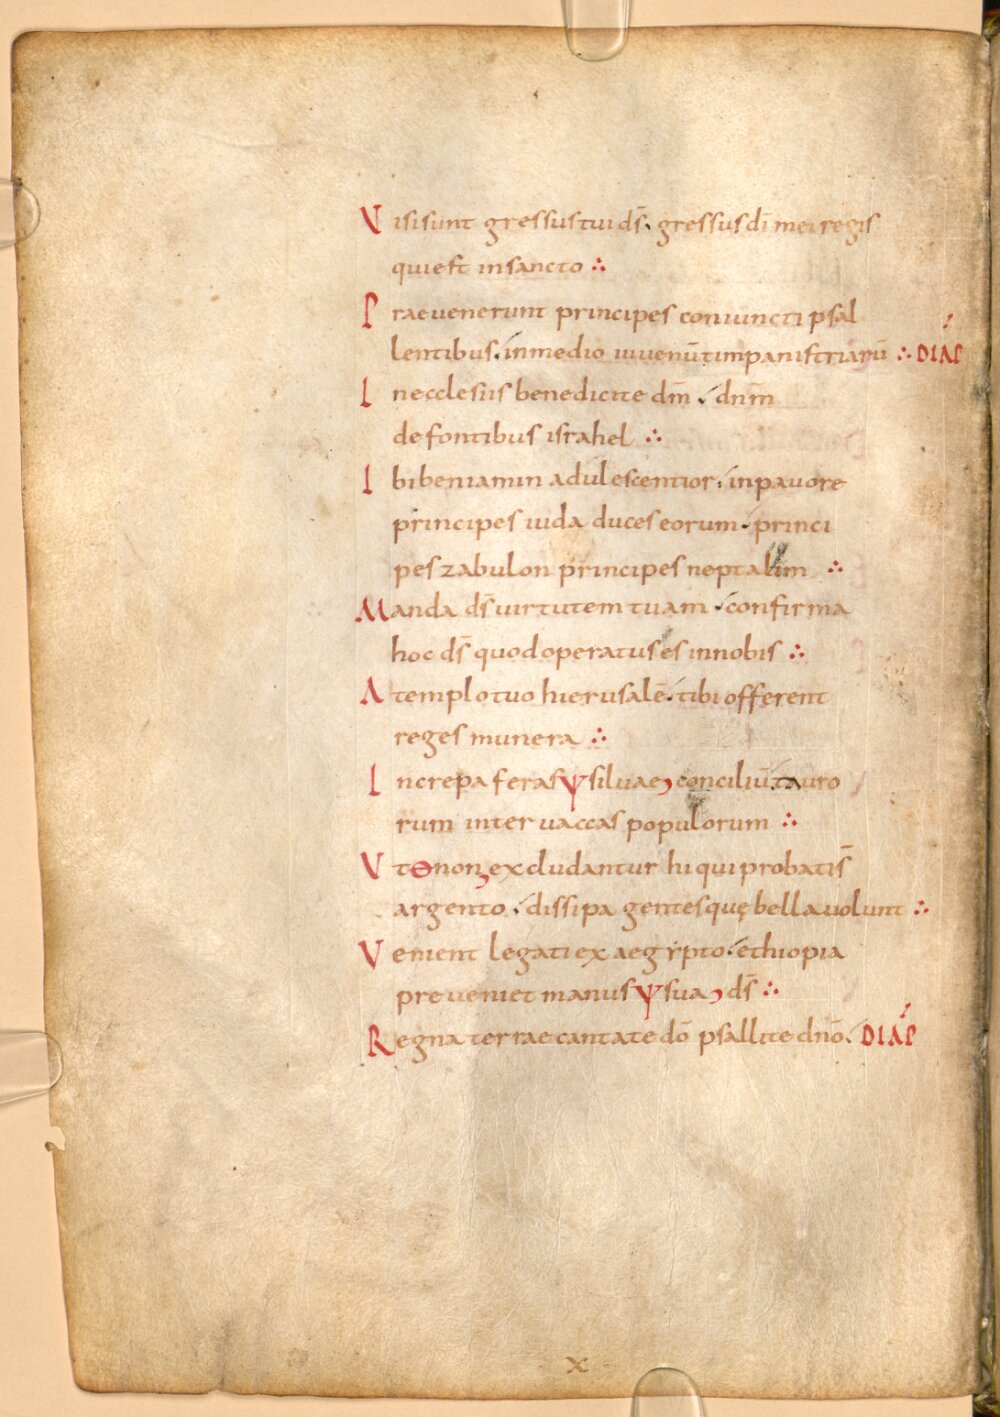 Visi sunt gressus tui ds̄. gressus dī mei regis
qui est in sancto ∴
Praevenerunt principes coniuncti psal
lentibus. in medio iuvenū timpanistriarū ∴ DIAP
In ecclesiis benedicite dm̄. dnm̄
de fontibus israhel ∴
Ibi beniamin adulescentior. in pavore
principes iuda duces eorum. princi
pes zabulon principes neptalim ∴
Manda ds̄ virtutem tuam. confirma
hoc ds̄ quod operatus es in nobis ∴
A templo tuo hierusalē. tibi offerent
reges munera ∴
Increpa feras ψ silvae, conciliū tauro
rum inter vaccas populorum ∴
Vt ɵ non excludantur hi qui probati s̄
argento. dissipa gentes quę bella volunt ∴
Venient legati ex aegypto. ethiopia
preveniet manus ψ sua, ds̄ ∴
Regna terrae cantate dō psallite dnō. DIAP
x